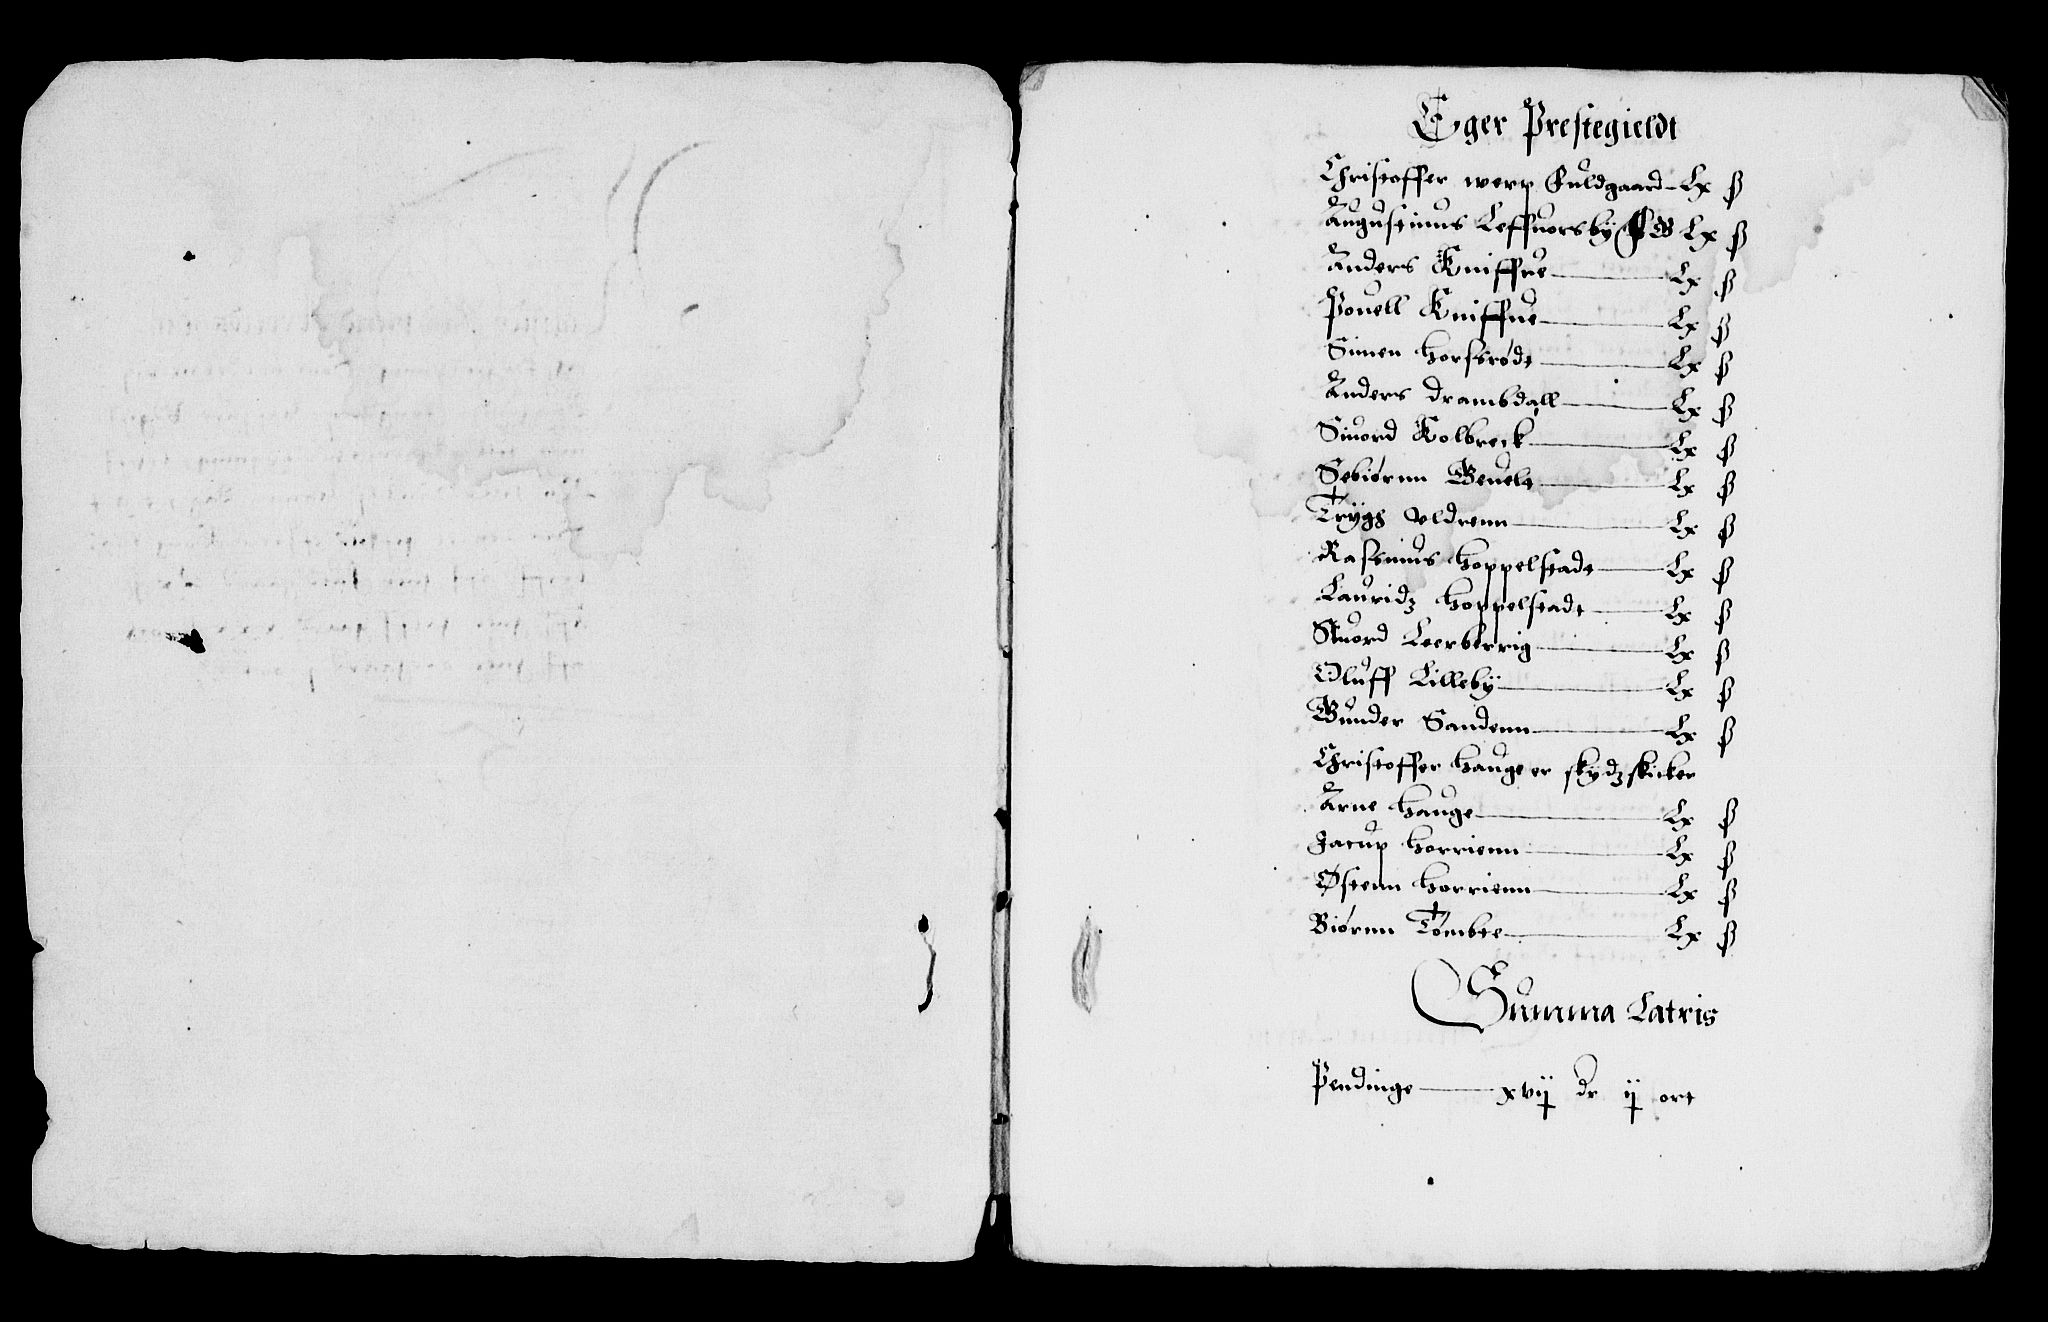 Eger Prestegieldt
Christoffer werp Guldgaard Lx ß
Augustinus Leffuorsby Lx ß
Anders Kniffue Lx ß
Pouell Kniffue Lx ß
Simen horssrødt Lx ß
Anders drambdall Lx ß
Siuord Kolbreck Lx ß
Sebiørnn Geuelt Lx ß
Trygs vldrenn Lx ß
Rassmus Hoppelstadt Lx ß
Lauridz Hoppelstadt Lx ß
Siuord Leerberrig Lx ß
Oluff Lilleby Lx ß
Gunder Sandenn Lx ß
Christoffer hauge er skydzskicker
Arne Hauge Lx ß
Jacup Horrienn Lx ß
Østenn Horrienn Lx ß
Biørnn Tømbte Lx ß
Summa Latris
Pendinge xvij dr ij ort